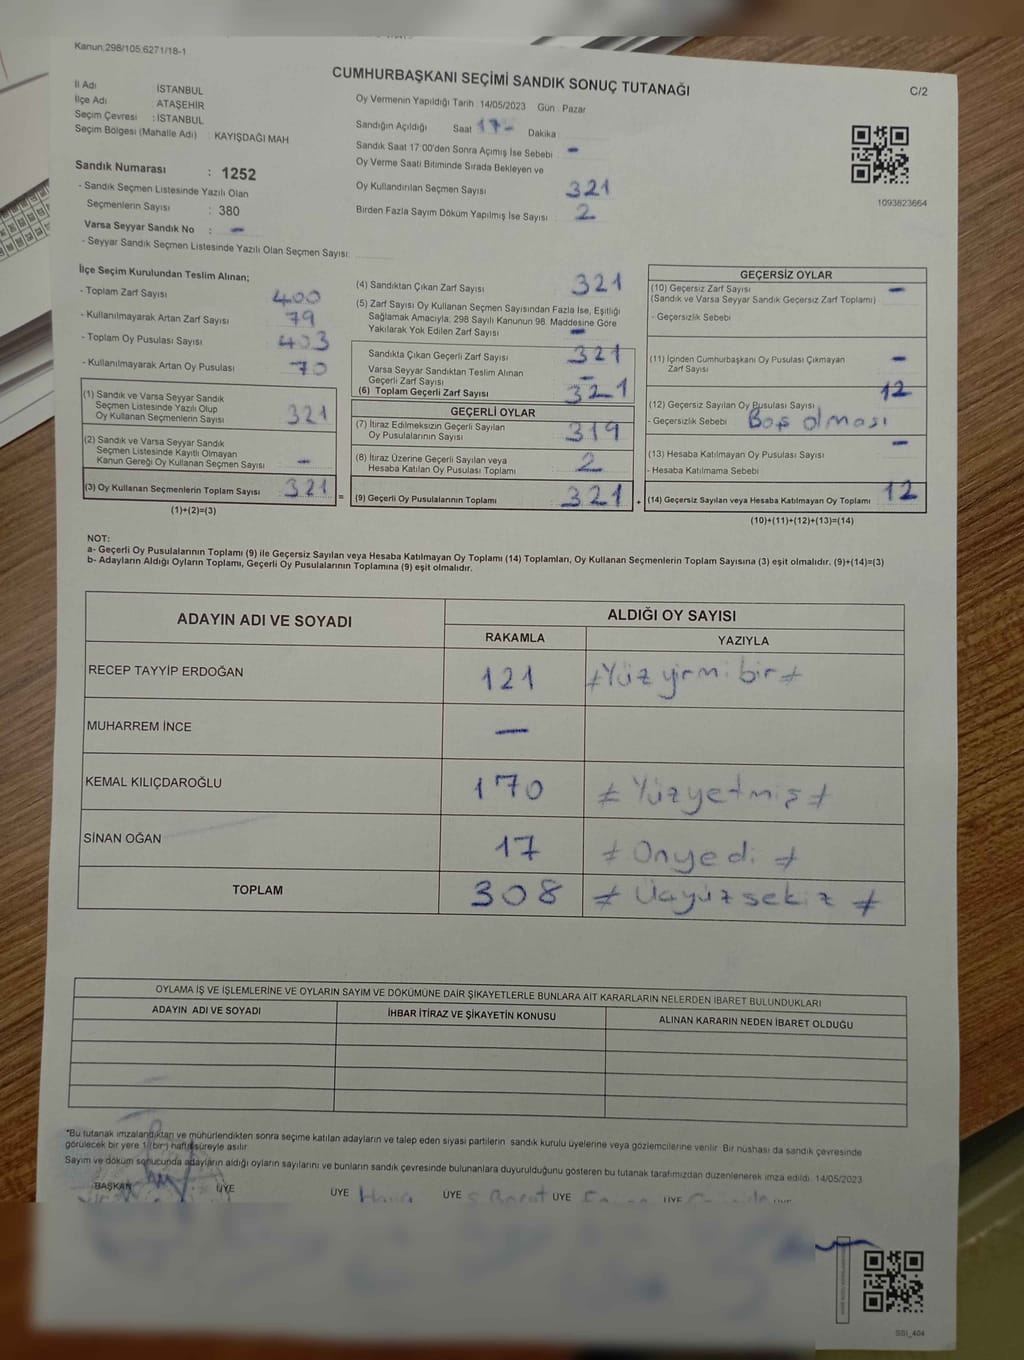 Kanun:298/105,6271/18-1
CUMHURBAŞKANI SEÇİMİ SANDIK SONUÇ TUTANAĞI
C/2
İl Adı İSTANBUL
İlçe Adı ATAŞEHİR
Seçim Çevresi : İSTANBUL
Seçim Bölgesi (Mahalle Adı) : KAYIŞDAĞI MAH
Sandık Numarası : 1252
- Sandık Seçmen Listesinde Yazılı Olan
Seçmenlerin Sayısı : 380
Varsa Seyyar Sandık No : -
- Seyyar Sandık Seçmen Listesinde Yazılı Olan Seçmen Sayısı:
Oy Vermenin Yapıldığı Tarih 14/05/2023 Gün : Pazar
Sandığın Açıldığı Saat 17- Dakika
Sandık Saat 17:00'den Sonra Açımış İse Sebebi -
Oy Verme Saati Bitiminde Sırada Bekleyen ve
Oy Kullandırılan Seçmen Sayısı 321
Birden Fazla Sayım Döküm Yapılmış İse Sayısı 2
1093823664
İlçe Seçim Kurulundan Teslim Alınan;
- Toplam Zarf Sayısı 400
- Kullanılmayarak Artan Zarf Sayısı 79
- Toplam Oy Pusulası Sayısı 403
- Kullanılmayarak Artan Oy Pusulası 70
(1) Sandık ve Varsa Seyyar Sandık
Seçmen Listesinde Yazılı Olup
Oy Kullanan Seçmenlerin Sayısı 321
(2) Sandık ve Varsa Seyyar Sandık
Seçmen Listesinde Kayıtlı Olmayan
Kanun Gereği Oy Kullanan Seçmen Sayısı -
(3) Oy Kullanan Seçmenlerin Toplam Sayısı 321 =
(1)+(2)=(3)
(4) Sandıktan Çıkan Zarf Sayısı 321
(5) Zarf Sayısı Oy Kullanan Seçmen Sayısından Fazla İse, Eşitliği
Sağlamak Amacıyla, 298 Sayılı Kanunun 98. Maddesine Göre
Yakılarak Yok Edilen Zarf Sayısı -
Sandıkta Çıkan Geçerli Zarf Sayısı 321
Varsa Seyyar Sandıktan Teslim Alınan
Geçerli Zarf Sayısı -
(6) Toplam Geçerli Zarf Sayısı 321
GEÇERLİ OYLAR
(7) İtiraz Edilmeksizin Geçerli Sayılan
Oy Pusulalarının Sayısı 319
(8) İtiraz Üzerine Geçerli Sayılan veya
Hesaba Katılan Oy Pusulası Toplamı 2
(9) Geçerli Oy Pusulalarının Toplamı 321 +
GEÇERSİZ OYLAR
(10) Geçersiz Zarf Sayısı -
(Sandık ve Varsa Seyyar Sandık Geçersiz Zarf Toplamı)
- Geçersizlik Sebebi
(11) İçinden Cumhurbaşkanı Oy Pusulası Çıkmayan -
Zarf Sayısı
(12) Geçersiz Sayılan Oy Pusulası Sayısı 12
- Geçersizlik Sebebi Boş olması
(13) Hesaba Katılmayan Oy Pusulası Sayısı -
- Hesaba Katılmama Sebebi
(14) Geçersiz Sayılan veya Hesaba Katılmayan Oy Toplamı 12
(10)+(11)+(12)+(13)=(14)
NOT:
a- Geçerli Oy Pusulalarının Toplamı (9) ile Geçersiz Sayılan veya Hesaba Katılmayan Oy Toplamı (14) Toplamları, Oy Kullanan Seçmenlerin Toplam Sayısına (3) eşit olmalıdır. (9)+(14)=(3)
b- Adayların Aldığı Oyların Toplamı, Geçerli Oy Pusulalarının Toplamına (9) eşit olmalıdır.
ADAYIN ADI VE SOYADI ALDIĞI OY SAYISI
RAKAMLA YAZIYLA
RECEP TAYYİP ERDOĞAN 121 ≠Yüz yirmi bir≠
MUHARREM İNCE -
KEMAL KILIÇDAROĞLU 170 ≠ Yüzyetmiş ≠
SİNAN OĞAN 17 ≠ Onyedi ≠
TOPLAM 308 ≠ Üçyüzsekiz ≠
OYLAMA İŞ VE İŞLEMLERİNE VE OYLARIN SAYIM VE DÖKÜMÜNE DAİR ŞİKAYETLERLE BUNLARA AİT KARARLARIN NELERDEN İBARET BULUNDUKLARI
ADAYIN ADI VE SOYADI İHBAR İTİRAZ VE ŞİKAYETİN KONUSU ALINAN KARARIN NEDEN İBARET OLDUĞU
*Bu tutanak imzalandıktan ve mühürlendikten sonra seçime katılan adayların ve talep eden siyasi partilerin sandık kurulu üyelerine veya gözlemcilerine verilir. Bir nüshası da sandık çevresinde
görülecek bir yere 1 (bir) hafta süreyle asılır.
Sayım ve döküm sonucunda adayların aldığı oyların sayılarını ve bunların sandık çevresinde bulunanlara duyurulduğunu gösteren bu tutanak tarafımızdan düzenlenerek imza edildi. 14/05/2023
BAŞKAN ÜYE ÜYE ÜYE ÜYE ÜYE
SSI_404